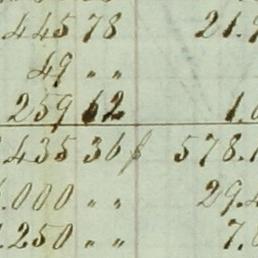 445 78 21.
49 " "
259 62 1.
435 36 f 578.1
.000 " " 29.4
.250 " " 7.